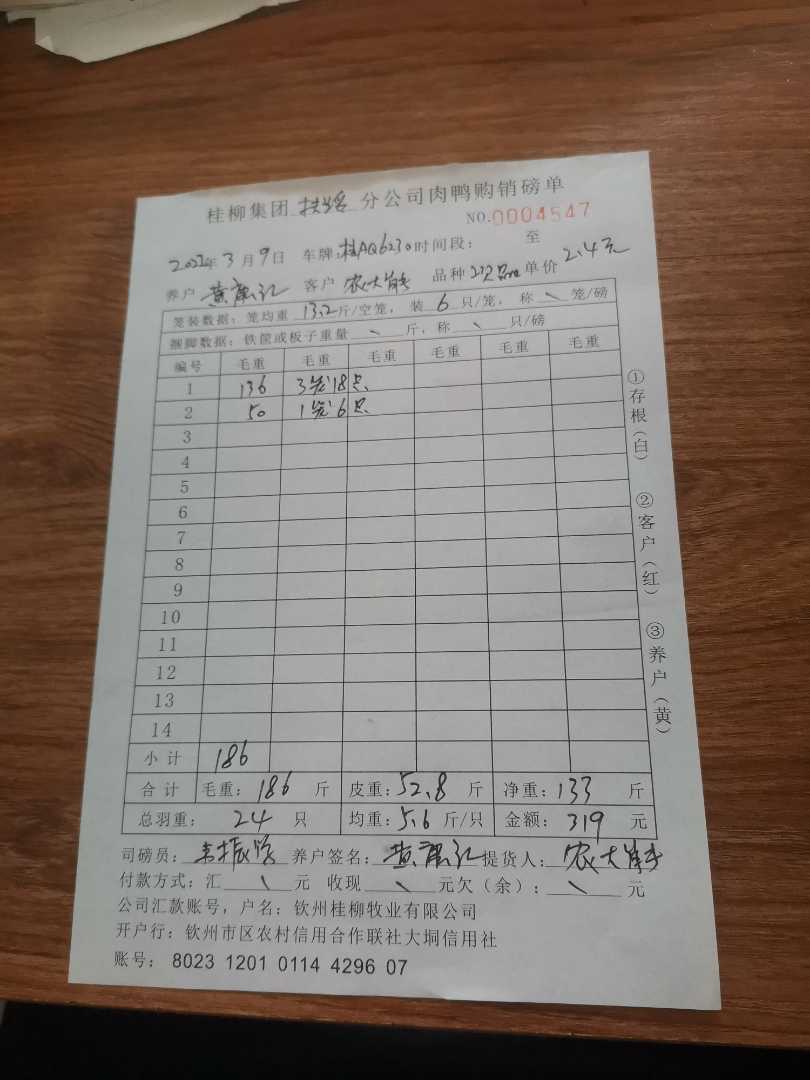 桂柳集团 扶绥 分公司肉鸭购销磅单
NO.0004547
2022年3月9日 车牌:桂AQ6230 时间段: 至
养户 黄 客户 农大 品种 次品 单价 2.4元
笼装数据:笼均重 13.2 斤/空笼,装 6 只/笼,称 \ 笼/磅
捆脚数据:铁筐或板子重量 \ 斤,称 \ 只/磅
编号 毛重 毛重 毛重 毛重 毛重 毛重
1 136 3笼18只
2 50 1笼6只
3
4
5
6
7
8
9
10
11
12
13
14
小计 186
合计 毛重:186 斤 皮重:52.8 斤 净重:133 斤
总羽重: 24 只 均重:5.6 斤/只 金额:319 元
司磅员: 振 养户签名: 黄 提货人: 农大
付款方式:汇 \ 元 收现 \ 元欠(余): \ 元
公司汇款账号,户名:钦州桂柳牧业有限公司
开户行:钦州市区农村信用合作联社大垌信用社
账号: 8023 1201 0114 4296 07
①存根(白) ②客户(红) ③养户(黄)